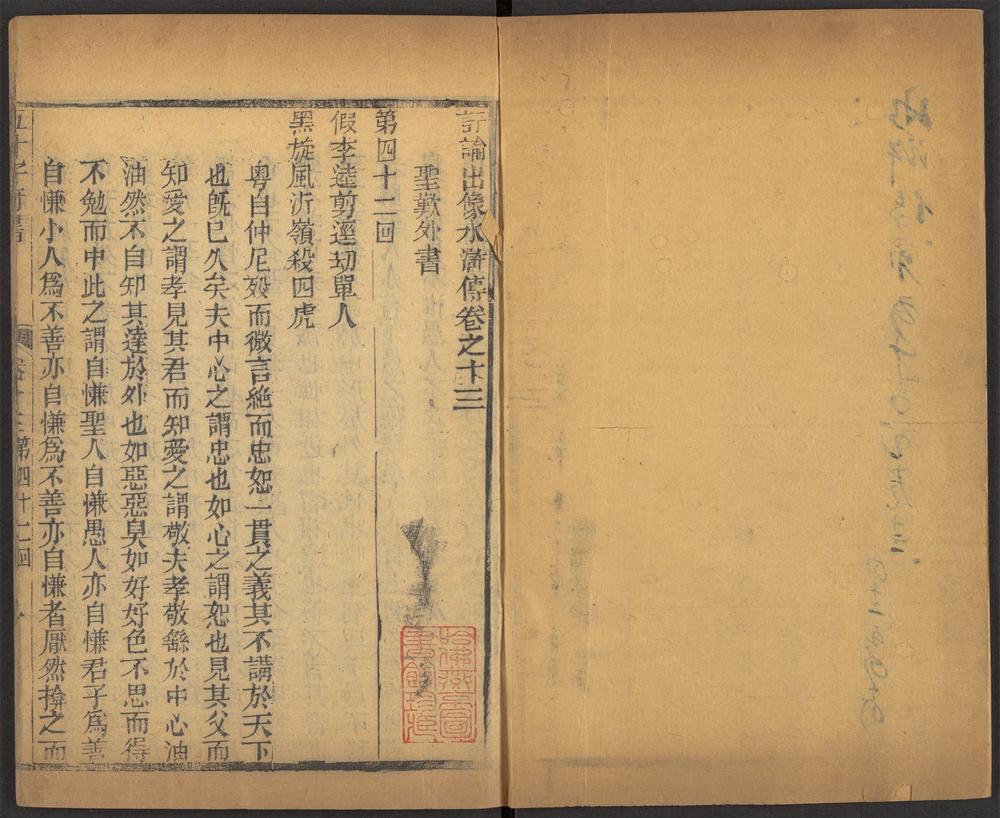 評論出像水滸傳卷之十三
聖歎外書
第四十二回
假李逵剪逕刼單人
黑旋風沂嶺殺四虎
粤自仲尼歿而微言絕而忠恕一貫之義其不講於天下
也旣已久矣夫中心之謂忠也如心之謂恕也見其父而
知愛之謂孝見其君而知愛之謂敬夫孝敬繇於中心油
油然不自知其達於外也如惡惡臭如好好色不思而得
不勉而中此之謂自慊聖人自慊愚人亦自慊君子爲善
自慊小人爲不善亦自慊爲不善亦自慊者厭然揜之而
五才子奇書
卷十三第四十二回
哈佛燕京圖書館珍藏